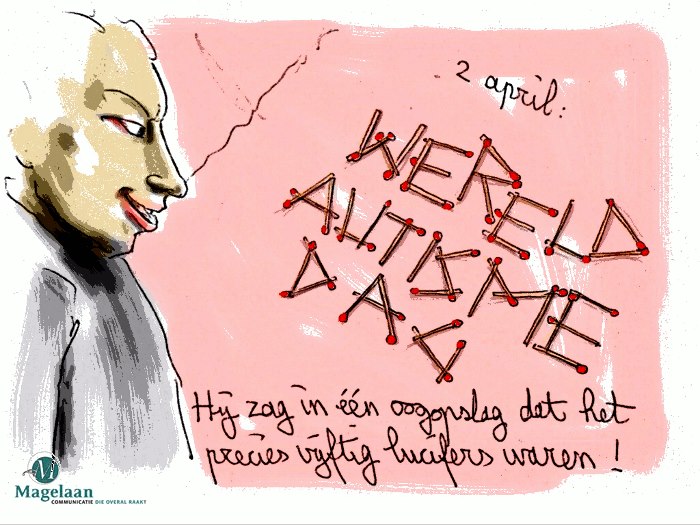 2 april:
WERELD
AUTISME
DAG
Hij zag in één oogopslag dat het
precies vijftig lucifers waren !
Magelaan
COMMUNICATIE DIE OVERAL RAAKT